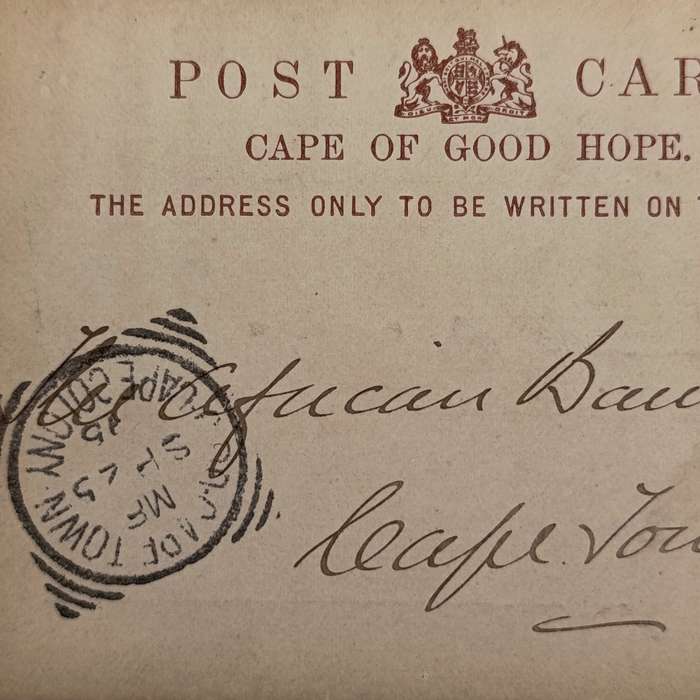 POST CAR
CAPE OF GOOD HOPE.
THE ADDRESS ONLY TO BE WRITTEN ON T
The African Ban
Cape Tow
CAPE TOWN. CAPE COLONY